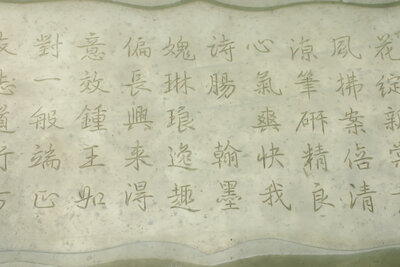 花綻新
風拂案倍清
凉筆研精良
心氣爽快我
詩腸翰墨
媿琳琅逸趣
偏長興来得
意效鍾王如
對一般端正
志道行